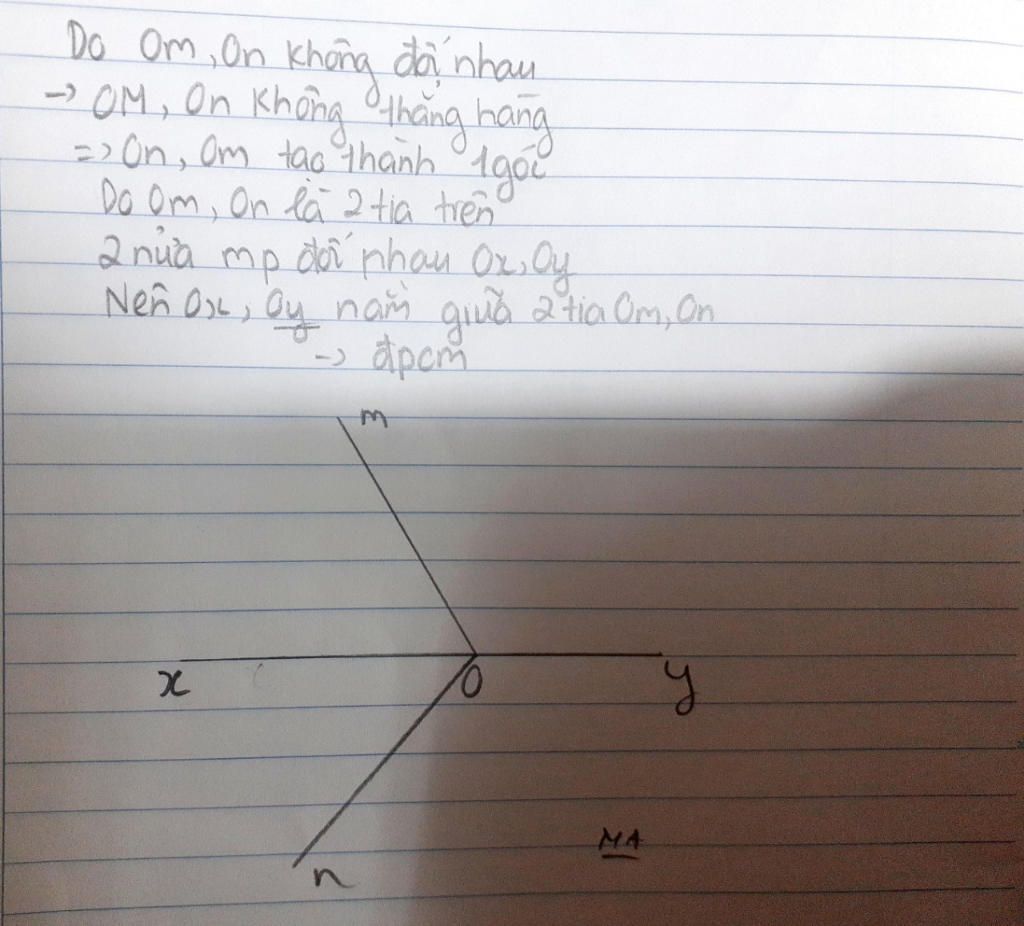 Do Om, On không đối nhau
-> OM, On không thẳng hàng
=> On, Om tạo thành 1 góc
Do Om, On là 2 tia trên
2 nửa mp đối nhau Ox, Oy
Nên Ox, Oy nằm giữa 2 tia Om, On
-> đpcm
m
x
O
y
n
MA